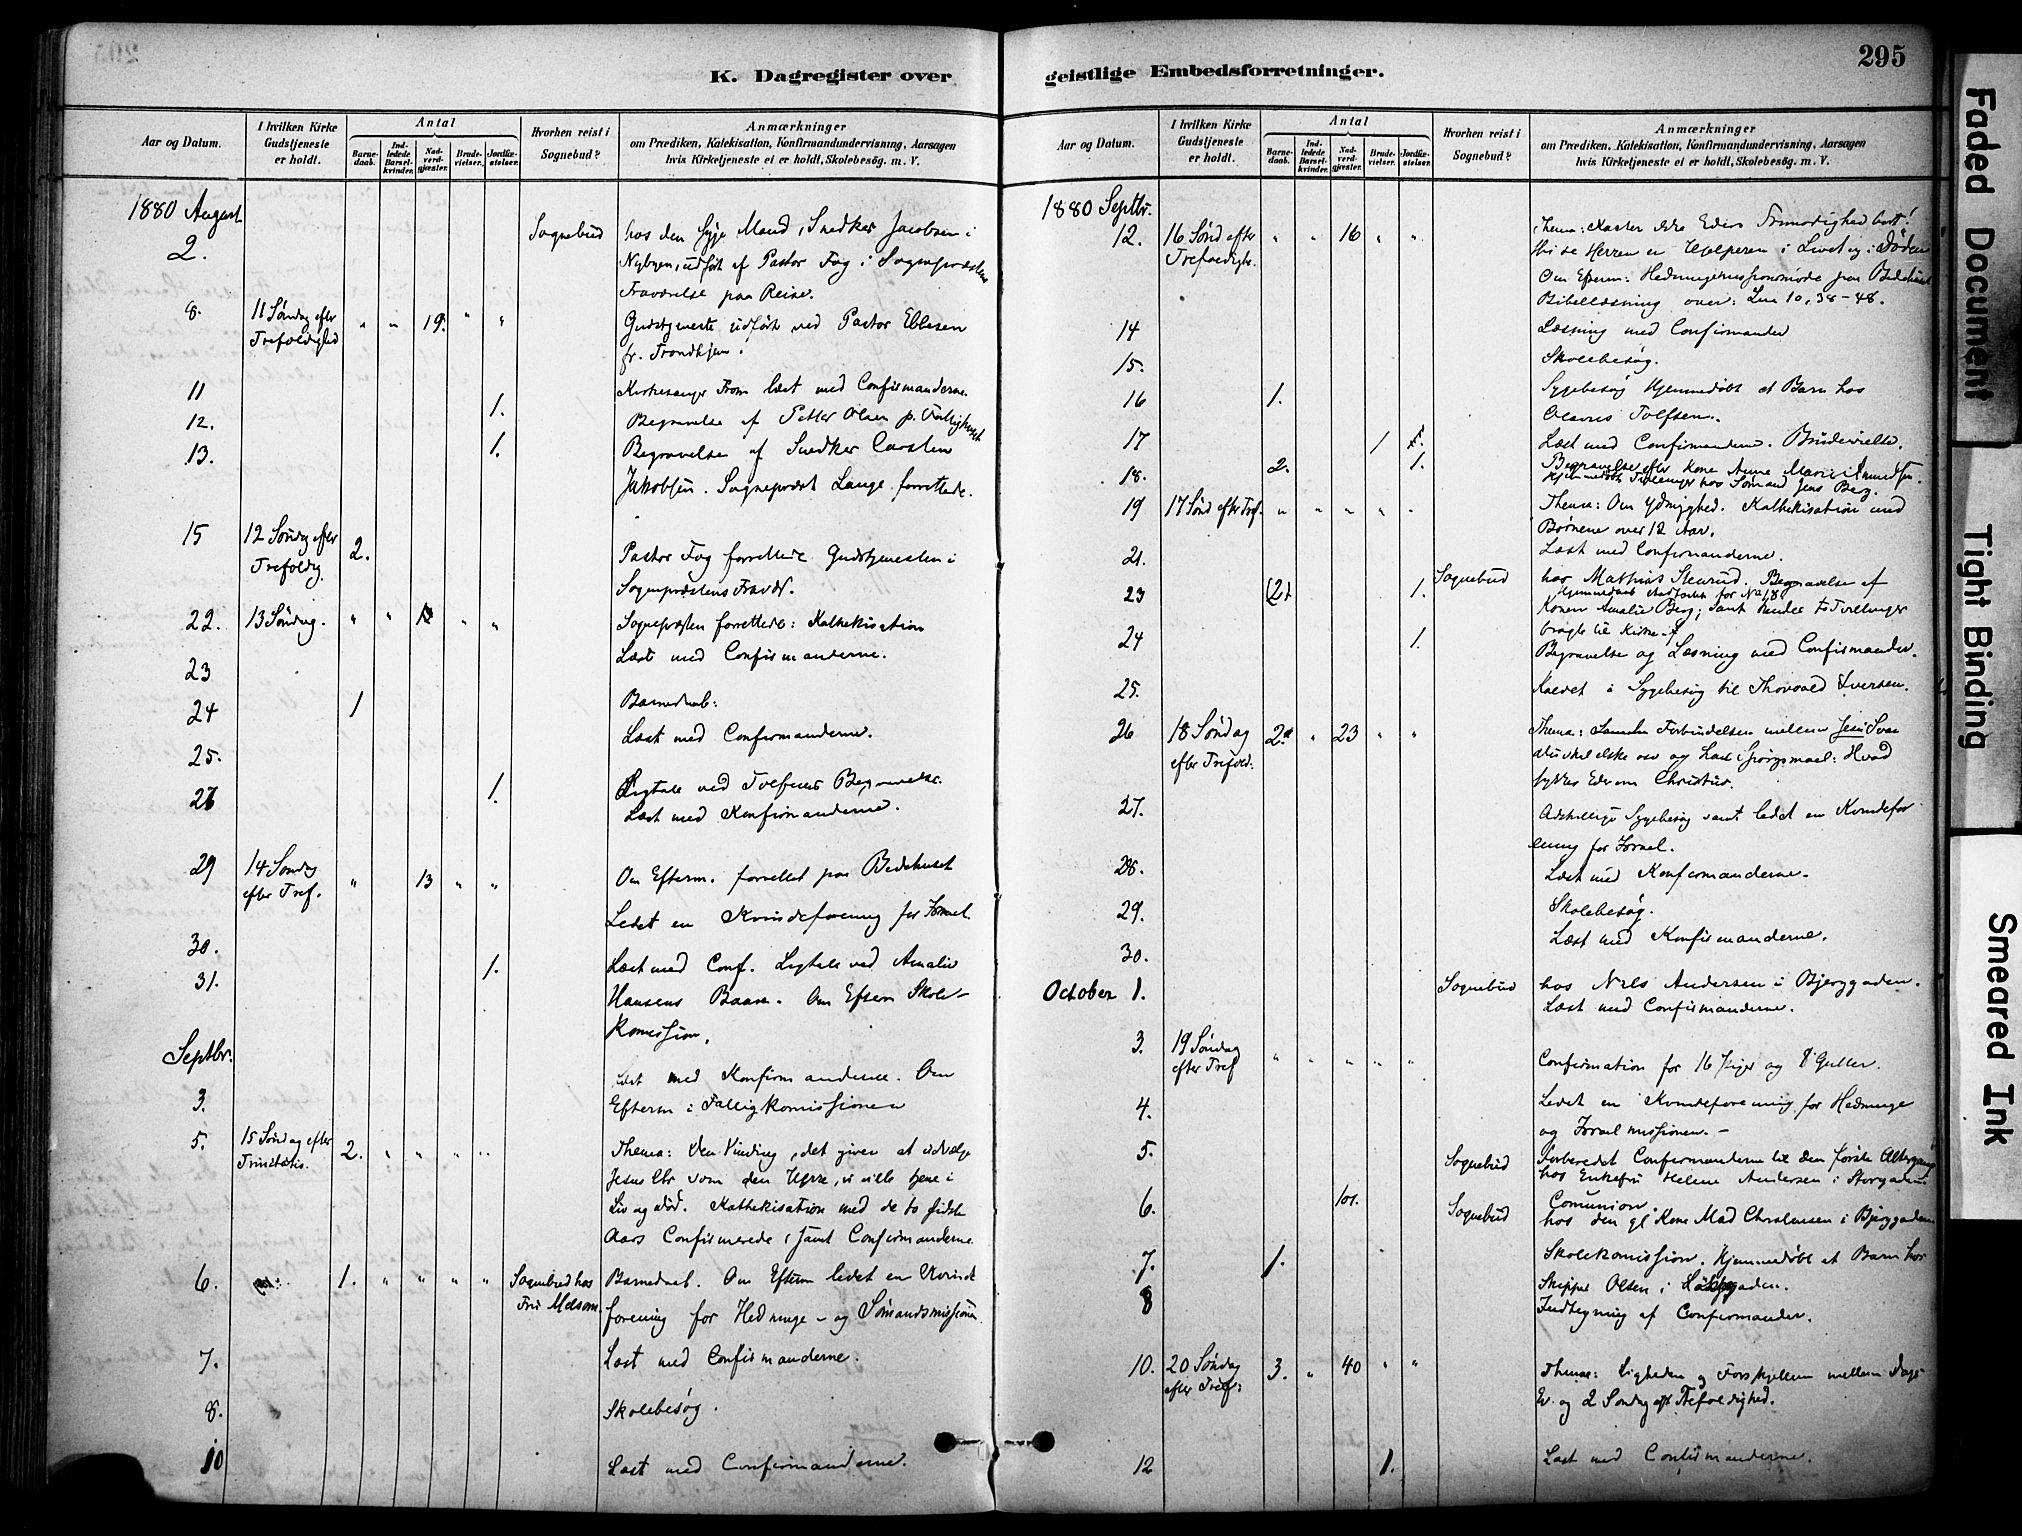 295
K. Dagregister over
geistlige Embedsforretninger.
Aar og Datum.
I hvilken Kirke Gudstjeneste er holdt.
Antal
Barnedaab.
Indledede Barselkvinder.
Nadverdgjæster.
Brudevielser.
Jordfæstelser.
Hvorhen reist i Sognebud?
Anmærkninger
om Prædiken, Katekisation, Konfirmandundervisning, Aarsagen
hvis Kirketjeneste ei er holdt, Skolebesøg. m. V.
1880 August
2. Sognebud hos den syge Mand, Snedker Jacobsen i
Nybyen, udført af Pastor Fog i Sognepræstens
Fraværelse paa Reise.
8. 11 Søndag efter Trefoldighed " " 19. " " Gudstjeneste udført ved Pastor Ebbesen
fr. Trondhjem.
11 Kirkesanger From læst med Confirmanderne.
12. 1. Begravelse af Petter Olsen p.
13. 1. Begravelse af Snedker Carsten
Jakobsen. Sognepræst Lange forrettede.
15 12 Søndg efter Trefoldig. 2. Pastor Fog forrettede Gudstjenesten i
Sognepræstens Fravær.
22. 13 Søndag. " " " " Sognepræsten forrettede: Kathekisation
23 Læst med Confirmanderne.
24 1 Barnedaab.
25. Læst med Confirmanderne.
27 1. Ligtale ved Begravelse.
Læst med Konfirmanderne.
29 14 Søndag efter Tref. " 13 " " Om Efterm. forrettet paa Bedehuset
30. Ledet en Kvindeforening for Israel.
31. 1. Læst med Conf. Ligtale ved Amalie
Hansens Baare. Om Efterm Skole-
komission.
Septbr.
3. Læst med Konfirmanderne. Om
Efterm i Fattigkomissionen
5. 15 Søndag efter Trinitatis. 2. " " " " Thema: Den Vinding, det giver at udvælge
Jesus Chr som den Herre, vi ville tjene i
Liv og død. Kathekisation med de to sidste
Aars Confirmerede samt Confirmanderne.
6. 1. " " " " Sognebud hos Fru Melsom. Barnedaab. Om Efterm ledet en Kvinde
forening for Hedninge- og Sømandsmissionen
7. Læst med Confirmanderne.
8. Skolebesøg.
10 Læst med Confirmanderne.
Aar og Datum.
I hvilken Kirke Gudstjeneste er holdt.
Antal
Barnedaab.
Indledede Barselkvinder.
Nadverdgjæster.
Brudevielser.
Jordfæstelser.
Hvorhen reist i Sognebud?
Anmærkninger
om Prædiken, Katekisation, Konfirmandundervisning, Aarsagen
hvis Kirketjeneste ei er holdt, Skolebesøg. m. V.
1880 Septbr.
12. 16 Sønd efter Trefoldigh. " " 16 " " Thema: Kaster ikke Eders Frimodighed bort!
thi se Herren er Hjelperen i Livet og i Døden
Om Efterm: Hedningemissionsmøde paa Bedehuset
Bibellæsning over: Luc 10, 38-48.
14 Læsning med Confirmander
15. Skolebesøg.
16 1. Sygebesøg Hjemmedøbt et Barn hos
Tolfsen.
17 1 Læst med Confirmanderne. Brudevielse.
18. 2. 1. Begravelse efter Kone Anne Marie Amundsen.
Hjemmedøbt Tvillinger hos Sømand Jens Berg.
19 17 Sønd efter Tref. " " " " " Thema: Om Ydmyghed. Kathekisation med
Børnene over 12 Aar.
21. Læst med Confirmanderne.
23 (2) 1. Sognebud hos Mathias Stensrud. Begravelse af
Konen Amalie Berg; samt hendes to Tvillinger
bragte til Kirke.
24 1. Begravelse og Læsning med Confirmander.
25. Kaldet i Sygebesøg til Thorvald Iversen.
26 18 Søndag efter Trefold: 2 " 23 " " Thema: Forbindelsen mellem Jesu Svar
du skal elske osv og Hans Spørgsmaal: Hvad
tykkes Eder om Christus.
27. Adskillige Sygebesøg samt ledet en Kvindefor
ening for Israel.
28. Læst med Konfirmanderne.
29. Skolebesøg.
30. Læst med Konfirmanderne.
October 1. Sognebud hos Nils Andersen i Bjerggaden.
Læst med Confirmanderne.
3. 19 Søndag efter Tref " " " " " Confirmation for 16 Piger og 8 Gutter.
4. Ledet en Kvindeforening for Hedninge
og Israelmissionen. -
5. Sognebud Forberedet Confirmanderne til den første Altergang
hos Enkefru Helene Andersen i Storgaden.
6. 101. Sognebud Comunion.
hos den gl Kone Mad Christensen i Bjerggaden
7. 1. Skolekomission. Hjemmedøbt et Barn hos
Skipper Olsen i
8 Indtegning af Confirmander.
10. 20 Søndag efter Tref: 3. " 40 " " Thema: Ligheden og Forskjellen mellem Dags
Ev. og 2 Søndag eft Trefoldighed.
12 1. Læst med Confirmanderne.
Faded Document
Tight Binding
Smeared Ink